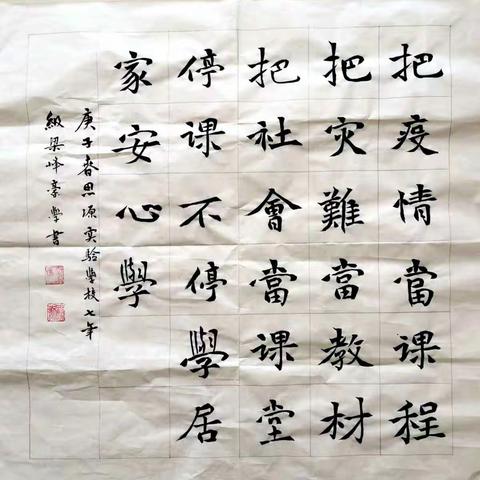 把疫情當课程
把灾難當教材
把社會當课堂
停课不停學居
家安心學
庚子春思源实验學校七年
级梁豪學书